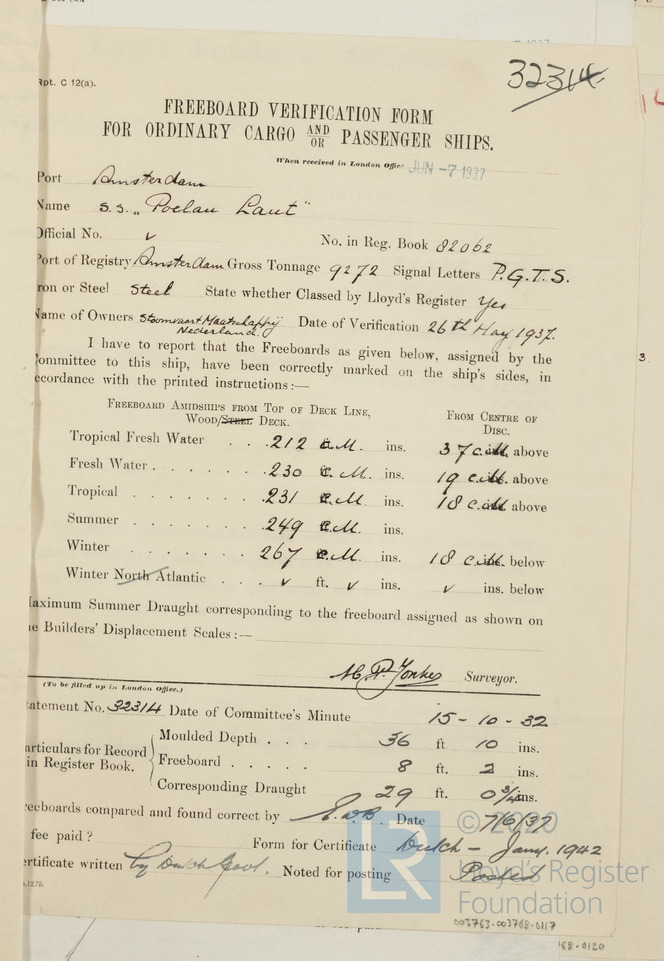 Rpt. C 12(a).
32314
FREEBOARD VERIFICATION FORM
FOR ORDINARY CARGO AND/OR PASSENGER SHIPS.
When received in London Office JUN -7 1937
Port Amsterdam
Name s.s. „Poelau Laut"
Official No. v No. in Reg. Book 82062
Port of Registry Amsterdam Gross Tonnage 9272 Signal Letters P.G.T.S.
ron or Steel Steel State whether Classed by Lloyd's Register Yes
Name of Owners Stoomvaart Maatschappij Nederland. Date of Verification 26th May 1937.
I have to report that the Freeboards as given below, assigned by the
Committee to this ship, have been correctly marked on the ship's sides, in
ccordance with the printed instructions:—
FREEBOARD AMIDSHIPS FROM TOP OF DECK LINE, WOOD/STEEL DECK. FROM CENTRE OF DISC.
Tropical Fresh Water . . . 212 c.M. ins. 37 c.M. above
Fresh Water . . . . . . 230 c.M. ins. 19 c.M. above
Tropical . . . . . . . 231 c.M. ins. 18 c.M. above
Summer . . . . . . . 249 c.M. ins.
Winter . . . . . . . 267 c.M. ins. 18 c.M. below
Winter North Atlantic . . . v ft. v ins. v ins. below
Maximum Summer Draught corresponding to the freeboard assigned as shown on
he Builders' Displacement Scales:—
Surveyor.
(To be filled up in London Office.)
tatement No. 32314 Date of Committee's Minute 15-10-32
articulars for Record in Register Book.
Moulded Depth . . . 36 ft 10 ins.
Freeboard . . . . . 8 ft. 2 ins.
Corresponding Draught 29 ft. 0 3/4 ins.
reeboards compared and found correct by Date 7/6/37
fee paid ? Form for Certificate Dutch - Jany. 1942
ertificate written by Dutch Govt. Noted for posting Posted
© 2020
LR
Lloyd's Register
Foundation
003763-003768-0117
68-0120
3